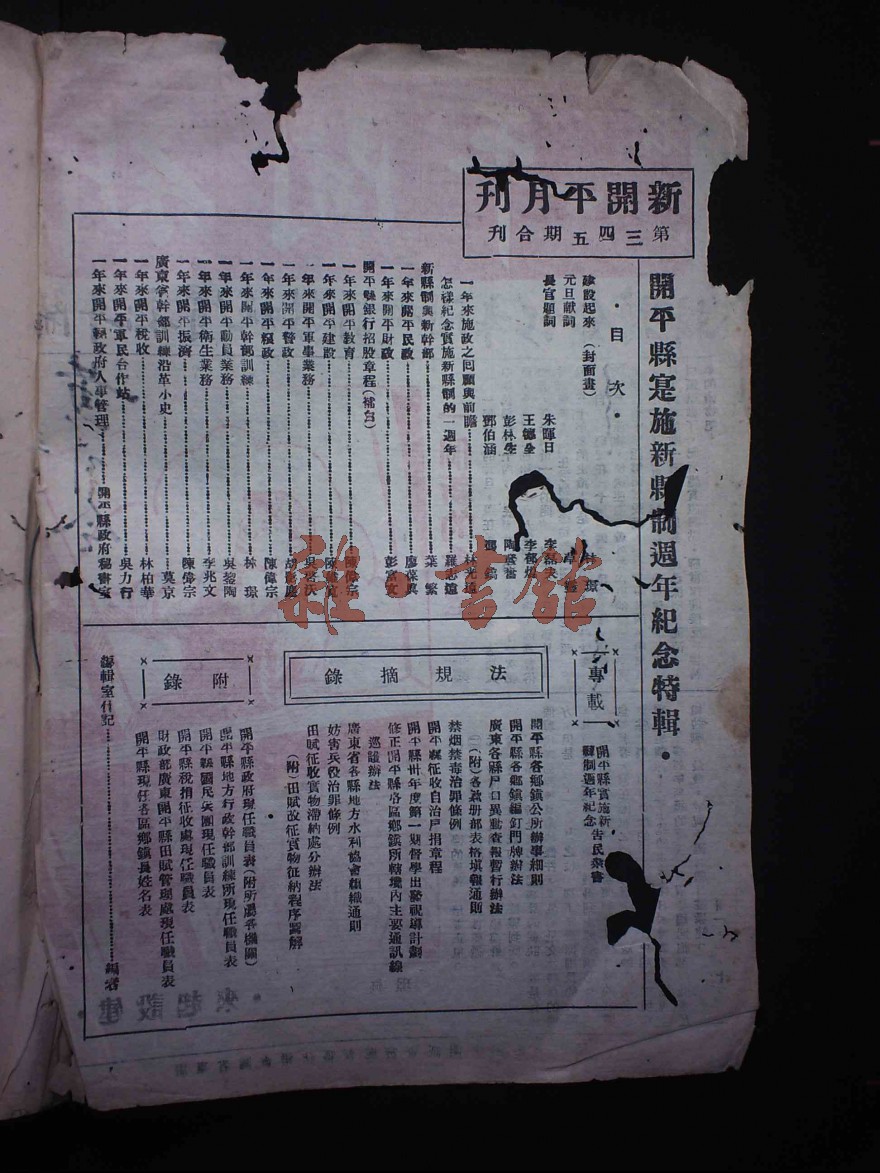 新開平月刊
第三四五期合刊
開平縣實施新縣制週年紀念特輯
目次
建設起來（封面畫）
元旦献詞
長官題詞
朱暉日
王德全
彭林生
鄧伯涵
一年來施政之回顧與前瞻
怎樣紀念實施新縣制的一週年 羅志遠
新縣制與新幹部 葉繁
一年來開平民政
一年來開平財政 彭富文
開平縣銀行招股章程（補白）
一年來開平教育 陳偉宗
一年來開平建設
一年來開平軍事業務
一年來開平警政
一年來開平糧政 陳偉宗
一年來開平幹部訓練 林璟
一年來開平動員業務 吳黎陶
一年來開平衛生業務 李兆文
一年來開平振濟 陳偉宗
廣東省幹部訓練沿革小史 莫京
一年來開平稅收 林柏華
一年來開平軍民合作站 吳力行
一年來開平縣政府人事管理 開平縣政府秘書室
專載
開平縣實施新縣制週年紀念告民衆書
法規摘錄
開平縣各鄉鎮公所辦事細則
開平縣各鄉鎮編釘門牌辦法
廣東各縣戶口異動查報暫行辦法
（附）各款册部表格填報通則
禁烟禁毒治罪條例
開平縣征收自治戶捐章程
開平縣卅年度第一期督學出發視導計劃
修正開平縣各區鄉鎮所轄境內主要通訊線巡護辦法
廣東省各縣地方水利協會組織通則
妨害兵役治罪條例
田賦征收實物滯納處分辦法
（附）田賦改征實物征納程序圖解
附錄
開平縣政府現任職員表（附所屬各機關）
開平縣地方行政幹部訓練所現任職員表
開平縣國民兵團現任職員表
開平縣稅捐征收處現任職員表
財政部廣東開平縣田賦管理處現任職員表
開平縣現任各區鄉鎮長姓名表
編輯室付記 編者
雜·書館